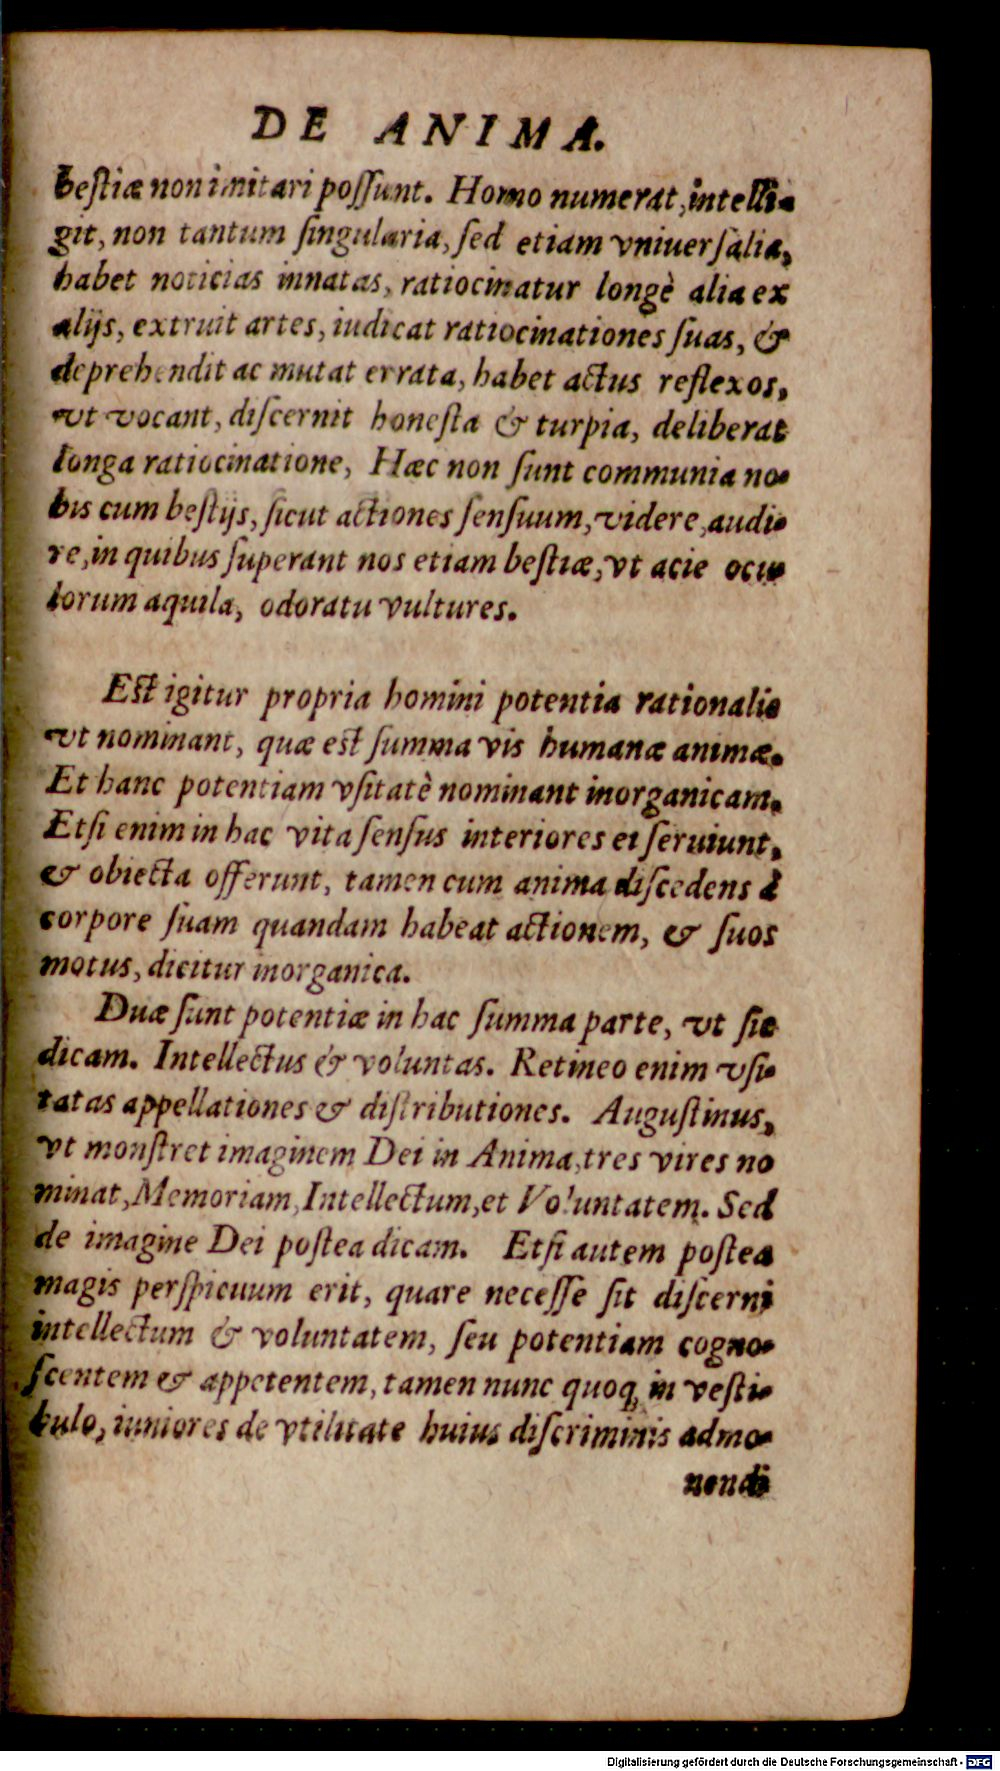 DE ANIMA.
beſtiæ non imitari poſſunt. Homo numerat, intelli-
git, non tantum ſingularia, ſed etiam vniuerſalia,
habet noticias innatas, ratiocinatur longè alia ex
alijs, extruit artes, iudicat ratiocinationes ſuas, &
deprehendit ac mutat errata, habet actus reflexos,
vt vocant, diſcernit honeſta & turpia, deliberat
longa ratiocinatione, Hæc non ſunt communia no-
bis cum beſtijs, ſicut actiones ſenſuum, videre, audi-
re, in quibus ſuperant nos etiam beſtiæ, vt acie ocu-
lorum aquila, odoratu vultures.
Eſt igitur propria homini potentia rationalis
vt nominant, quæ eſt ſumma vis humanæ animæ.
Et hanc potentiam vſitatè nominant inorganicam.
Etſi enim in hac vita ſenſus interiores ei ſeruiunt,
& obiecta offerunt, tamen cum anima diſcedens à
corpore ſuam quandam habeat actionem, & ſuos
motus, dicitur inorganica.
Duæ ſunt potentiæ in hac ſumma parte, vt ſic
dicam. Intellectus & voluntas. Retineo enim vſi-
tatas appellationes & diſtributiones. Auguſtinus,
vt monſtret imaginem Dei in Anima, tres vires no
minat, Memoriam, Intellectum, et Voluntatem. Sed
de imagine Dei poſtea dicam. Etſi autem poſtea
magis perſpicuum erit, quare neceſſe ſit diſcerni
intellectum & voluntatem, ſeu potentiam cogno-
ſcentem & appetentem, tamen nunc quoq; in veſti-
bulo, iuniores de vtilitate huius diſcriminis admo-
nendi
Digitalisierung gefördert durch die Deutsche Forschungsgemeinschaft - DFG